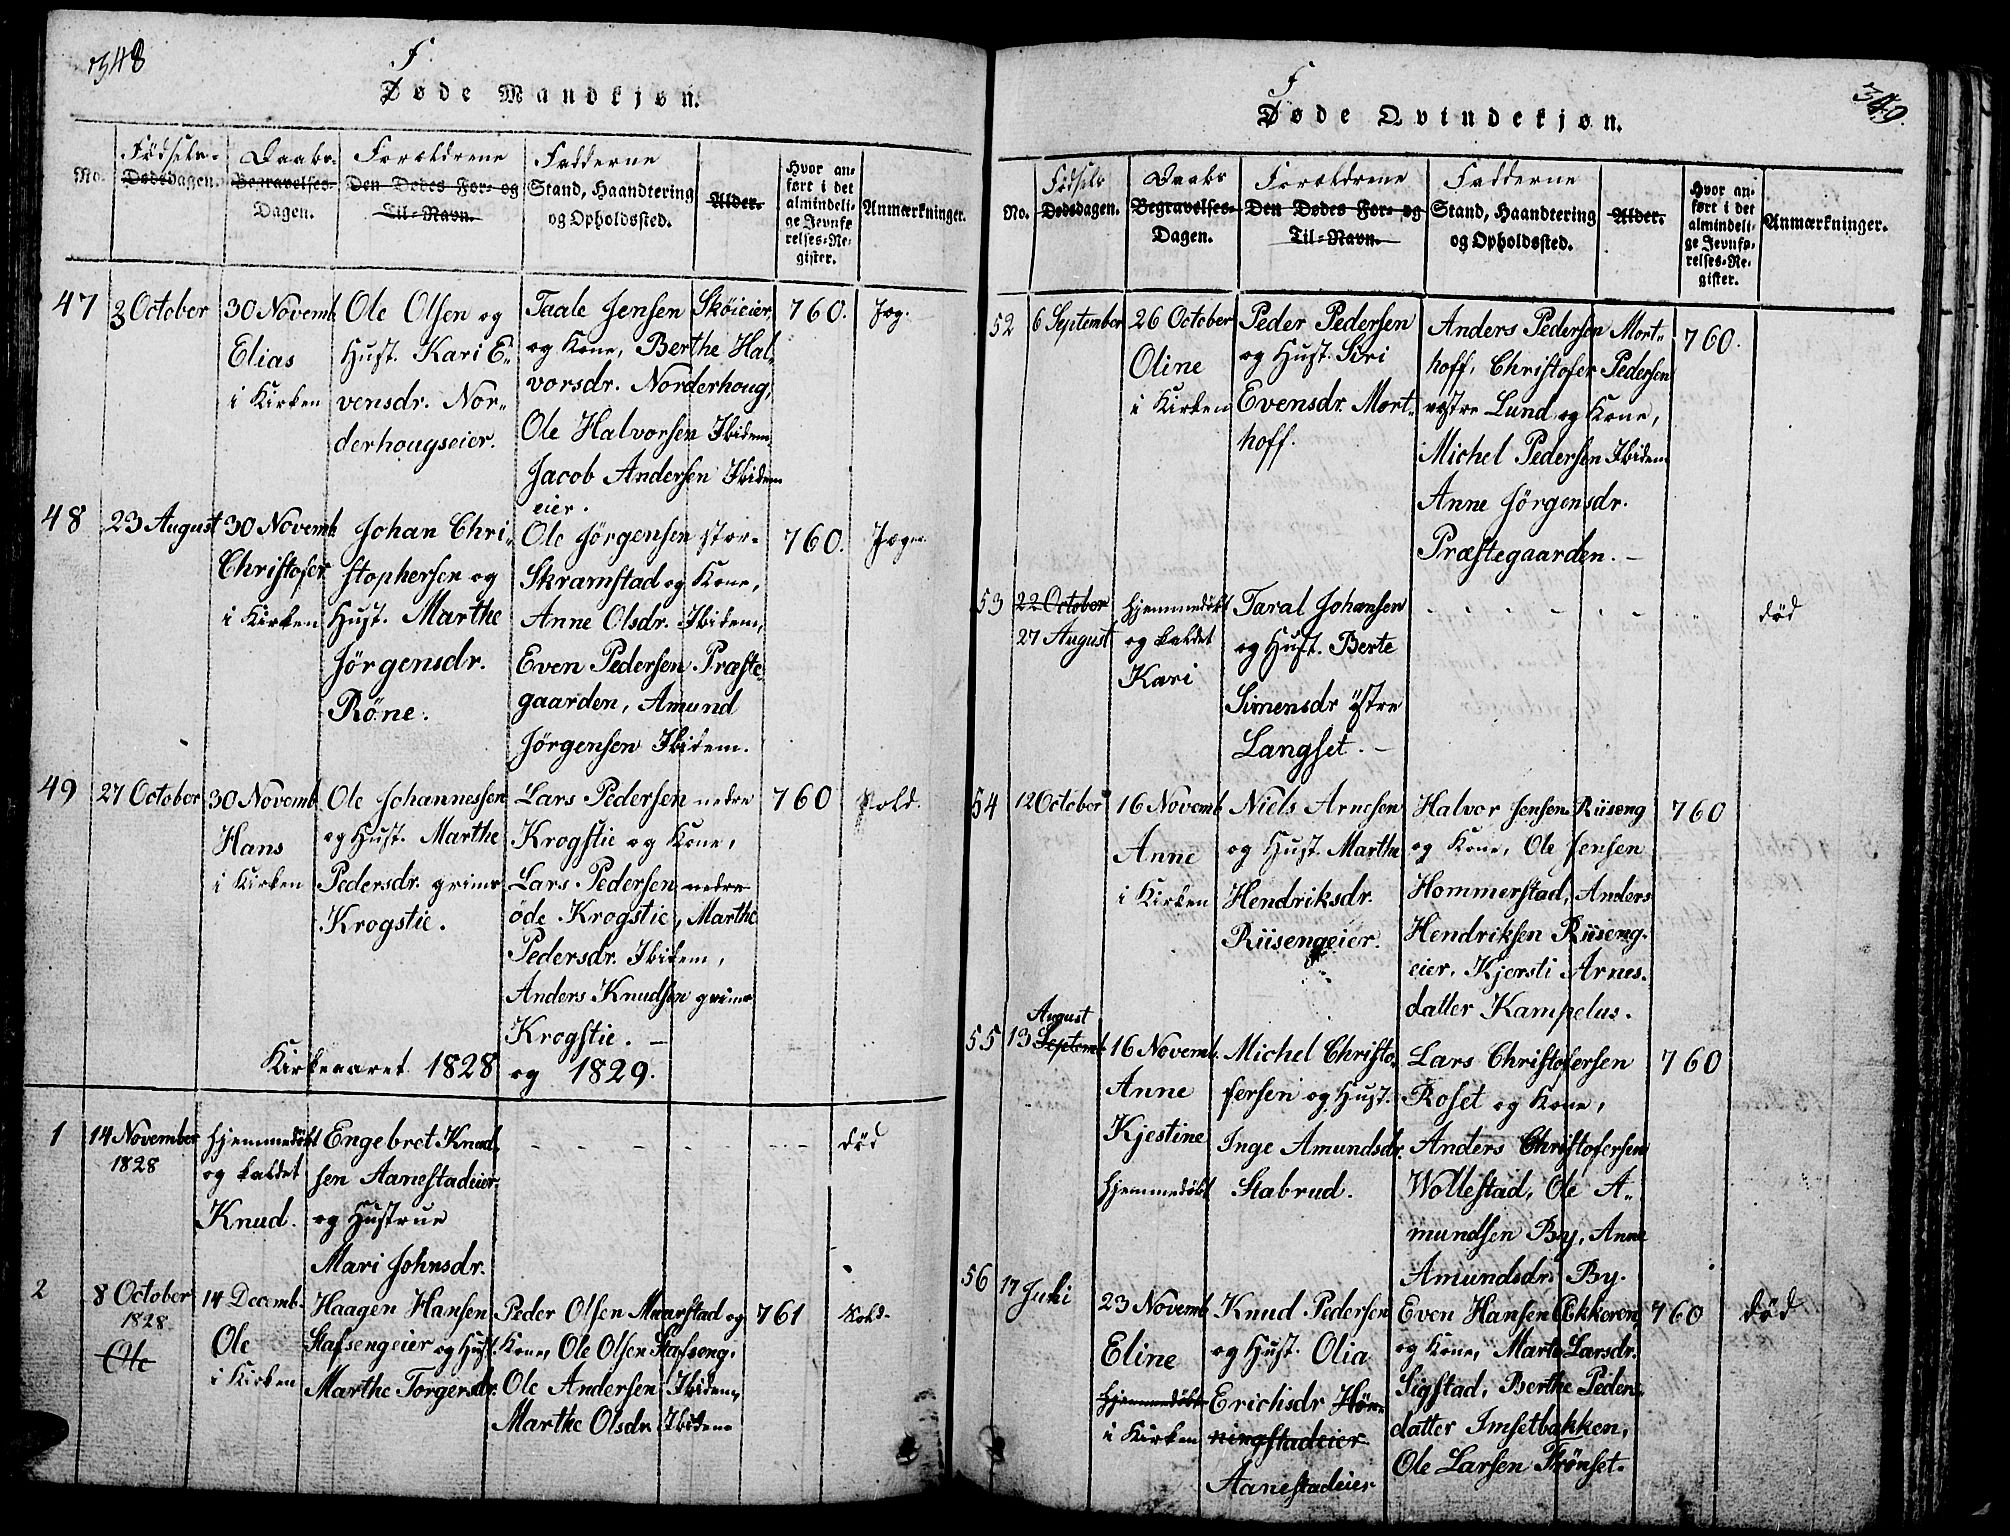 348
F
Døde Mandkjøn.
No.
Fødsels-
Dødsdagen.
Daabs-
Begravelses-
Dagen.
Forældrene
Den Dødes For- og
Til-Navn.
Fadderne
Stand, Haandtering
og Opholdssted.
Alder.
Hvor an-
ført i det
almindeli-
ge Jevnfø-
relses-Re-
gister.
Anmærkninger.
47
3 October
30 Novemb.
Elias
i Kirken
Ole Olsen og
Hust. Kari E-
vensdr. Nor-
derhougseier.
Taale Jensen Skøieier,
og Kone, Berthe Hal-
vorsdr. Norderhoug,
Ole Halvorsen Ibidem
Jacob Andersen Ibidem
eier.
760.
48
23 August
30 Novemb.
Christofer
i Kirken
Johan Chri-
stophersen og
Hust. Marthe
Jørgensdr.
Röne.
Ole Jörgensen stor-
Skramstad og Kone,
Anne Olsdr. Ibidem,
Even Pedersen Præste-
gaarden, Amund
Jörgensen Ibidem.
760.
49
27 October
30 Novemb.
Hans
i Kirken
Ole Johannessen
og Hust. Marthe
Pedersdr. grim
Krogstie.
Lars Pedersen nedre
Krogstie og Kone,
Lars Pedersen nedre
øde Krogstie, Marthe
Pedersdr. Ibidem,
Anders Knudsen grim
Krogstie.
760
Kold.
Kirkeaaret 1828 og 1829.
1
14 November
1828
hjemmedöbt
og kaldet
Knud.
Engebret Knud-
sen Aanestadeier
og Hustrue
Mari Johnsdr.
död
2
8 October
1828
Ole
14 Decemb.
Ole
i Kirken
Haagen Hansen
Stafsengeier og Hust.
Marthe Torgersdr.
Peder Olsen Maarstad og
Kone, Ole Olsen Stafseng,
Ole Andersen Ibidem,
Marthe Olsdr. Ibidem
761
Kold.
349.
F
Døde Qvindekjøn.
No.
Fødsels
Dødsdagen.
Daabs
Begravelses-
Dagen.
Forældrene
Den Dødes For- og
Til-Navn.
Fadderne
Stand, Haandtering
og Opholdssted.
Alder.
Hvor an-
ført i det
almindeli-
ge Jevnfø-
relses-Re-
gister.
Anmærkninger.
52
6 September
26 October
Oline
i Kirken
Peder Pedersen
og Hust. Siri
Evensdr. Mort-
hoff.
Anders Pedersen Mort-
hoff, Christofer Pedersen
vestre Lund og Kone,
Michel Pedersen Ibidem
Anne Jörgensdr.
Præstegaarden.
760.
53
22 October
27 August
hjemmedöbt
og kaldet
Kari
Taral Johansen
og Hust. Berte
Simensdr östre
Langset.
död
54
12 October
16 Novemb.
Anne
i Kirken
Niels Arnesen
og Hust. Marthe
Hendriksdr.
Riisengeier.
Halvor Jensen Riiseng
og Kone, Ole Jensen
Hommerstad, Anders
Hendriksen Riiseng-
eier, Kjersti Arnes-
datter Kampelus.
760
55
August
13 Septemb.
16 Novemb.
Anne
Kjestine
hjemmedöbt
Michel Christo-
fersen og Hust.
Inge Amundsdr.
Stabrud.
Lars Christofersen
Roset og Kone,
Anders Christofersen
Wollestad, Ole A-
mundsen By, Anne
Amundsdr. By.
760
56
17 Juni
23 Novemb.
Eline
hjemmedöbt
i Kirken
Knud Pedersen
og Hust. Olia
Erichsdr Hör-
ningstadeier
Aanestadeier
Even Hansen Ekkeren,
og Kone, Marte Larsdr.
Sigstad, Berthe Peders-
datter Imsetbakken,
Ole Larsen Trönset.
760
död